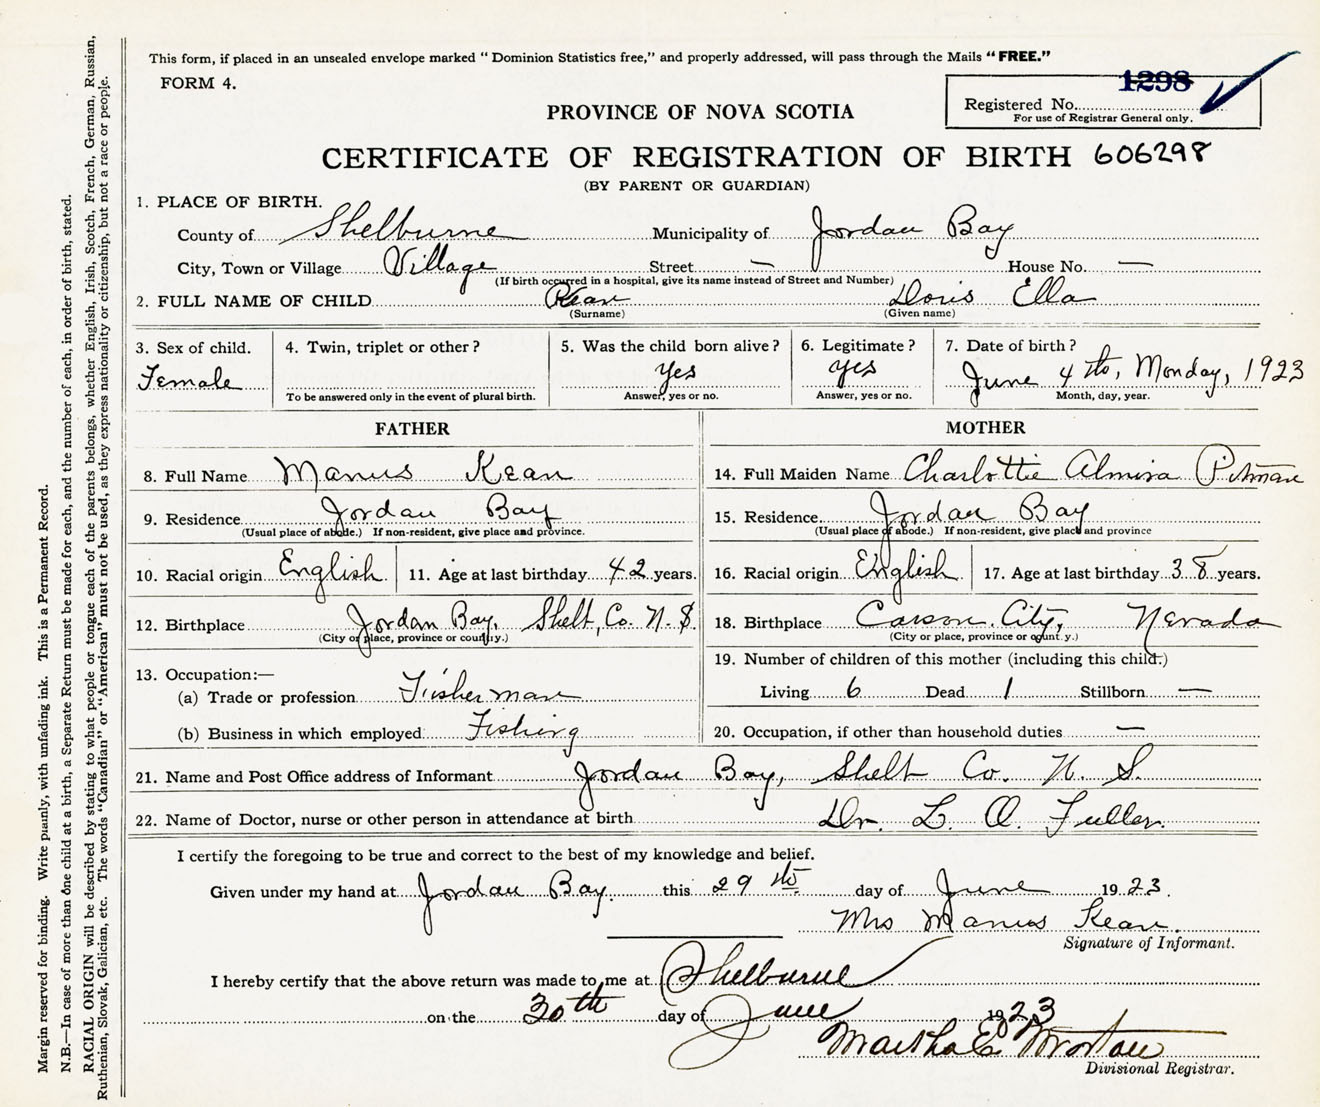 This form, if placed in an unsealed envelope marked “ Dominion Statistics free,” and properly addressed, will pass through the Mails “ FREE.”
FORM 4.
1298
Registered No.
For use of Registrar General only.
PROVINCE OF NOVA SCOTIA
CERTIFICATE OF REGISTRATION OF BIRTH 606298
(BY PARENT OR GUARDIAN)
1. PLACE OF BIRTH.
County of Shelburne Municipality of Jordan Bay
City, Town or Village Village Street — House No. —
(If birth occurred in a hospital, give its name instead of Street and Number)
2. FULL NAME OF CHILD Kean Doris Ella
(Surname) (Given name)
3. Sex of child. 4. Twin, triplet or other? 5. Was the child born alive? 6. Legitimate? 7. Date of birth?
Female yes yes June 4th, Monday, 1923
To be answered only in the event of plural birth. Answer, yes or no. Answer, yes or no. Month, day, year.
FATHER MOTHER
8. Full Name Manus Kean 14. Full Maiden Name Charlottie Almira Pitman
9. Residence Jordan Bay 15. Residence Jordan Bay
(Usual place of abode.) If non-resident, give place and province. (Usual place of abode.) If non-resident, give place and province
10. Racial origin English 11. Age at last birthday 42 years. 16. Racial origin English 17. Age at last birthday 38 years.
12. Birthplace Jordan Bay, Shelt, Co. N. S. 18. Birthplace Carson City, Nevada
(City or place, province or country.) (City or place, province or country.)
13. Occupation:— 19. Number of children of this mother (including this child.)
(a) Trade or profession Fisherman Living 6 Dead 1 Stillborn —
(b) Business in which employed Fishing 20. Occupation, if other than household duties —
21. Name and Post Office address of Informant Jordan Bay, Shelt Co. N. S.
22. Name of Doctor, nurse or other person in attendance at birth Dr. L. O. Fuller.
I certify the foregoing to be true and correct to the best of my knowledge and belief.
Given under my hand at Jordan Bay. this 29th day of June 1923.
Mrs Manus Kean.
Signature of Informant.
I hereby certify that the above return was made to me at Shelburne
on the 30th day of June 1923
Martha E Morton
Divisional Registrar.
Margin reserved for binding. Write plainly, with unfading ink. This is a Permanent Record.
N.B.—In case of more than one child at a birth, a Separate Return must be made for each, and the number of each, in order of birth, stated.
RACIAL ORIGIN will be described by stating to what people or tongue each of the parents belongs, whether English, Irish, Scotch, French, German, Russian,
Ruthenian, Slovak, Galician, etc. The words “Canadian” or “American” must not be used, as they express nationality or citizenship, but not a race or people.